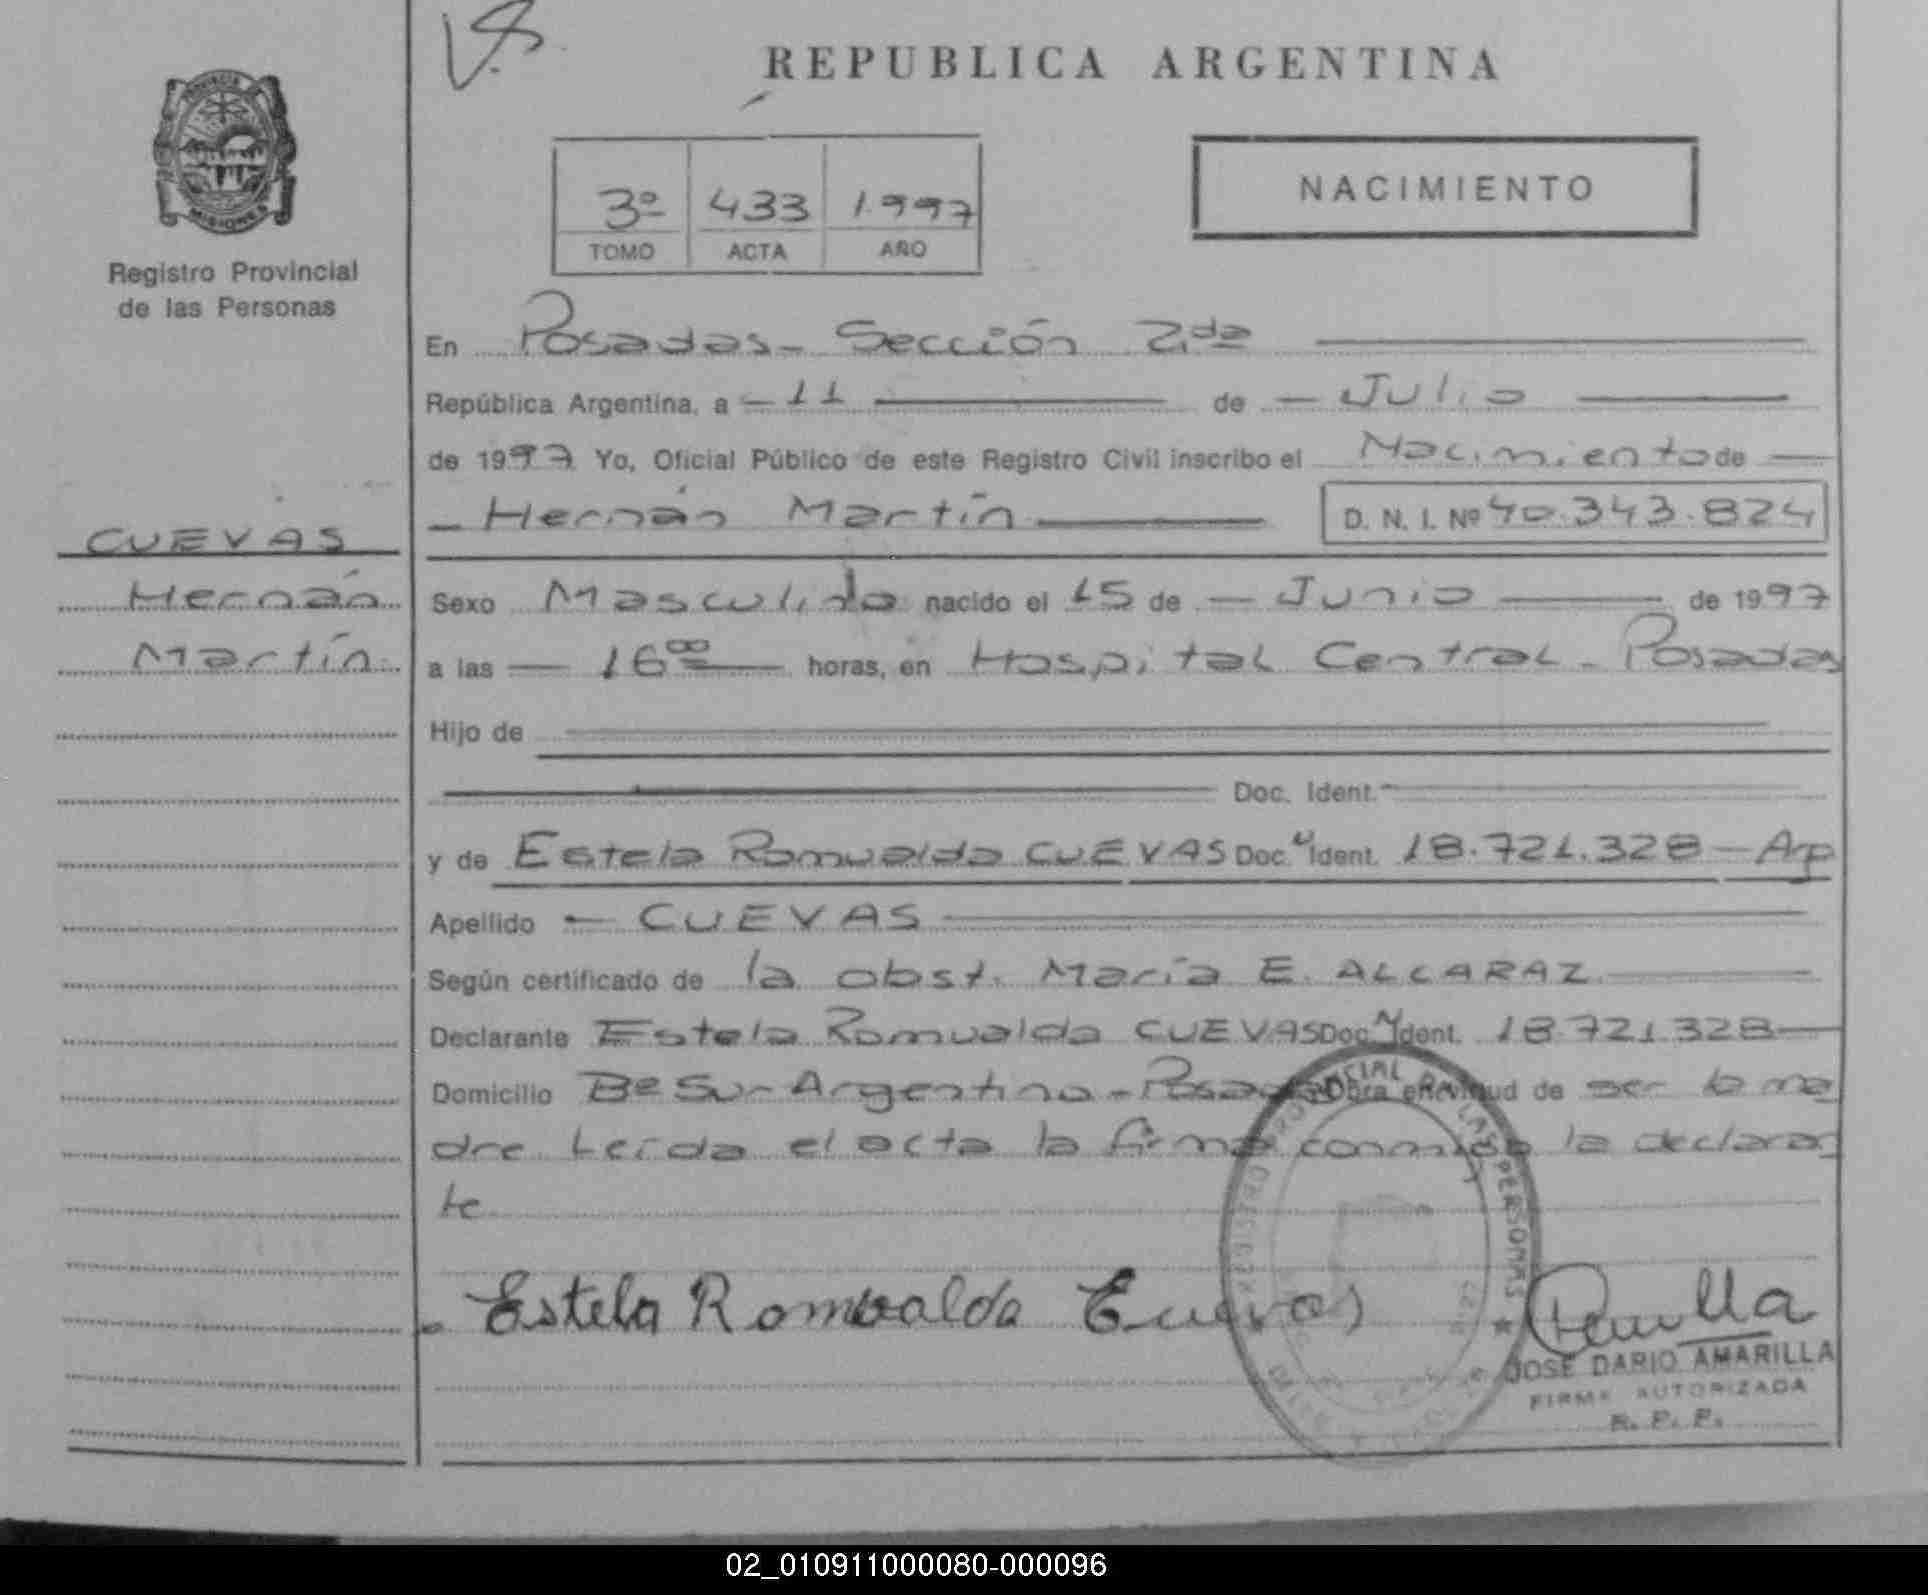 V.B.
REPUBLICA ARGENTINA
PROVINCIA
MISIONES
Registro Provincial
de las Personas
3º 433 1.997
TOMO ACTA AÑO
NACIMIENTO
En Posadas - Sección 2.da
República Argentina, a - 11 de - Julio
de 1997 Yo, Oficial Público de este Registro Civil inscribo el Nacimiento de
- Hernán Martín D. N. I. Nº 40.343.824
CUEVAS
Hernán
Martín
Sexo Masculino nacido el 15 de - Junio de 1997
a las - 16 00 horas, en Hospital Central - Posadas
Hijo de
Doc. Ident.
y de Estela Romualda CUEVAS Doc. Ident. 18.721.328 - Arg
Apellido - CUEVAS
Según certificado de la obst. María E. ALCARAZ
Declarante Estela Romualda CUEVAS Doc. Ident. 18.721.328
Domicilio Bº Sur Argentino - Posadas Obra en virtud de ser la ma
dre Leída el acta la firma conmigo la declaran
te
Estela Romualda Cuevas
REGISTRO PROVINCIAL DE LAS PERSONAS
JOSE DARIO AMARILLA
FIRMA AUTORIZADA
R. P. P.
02_010911000080-000096